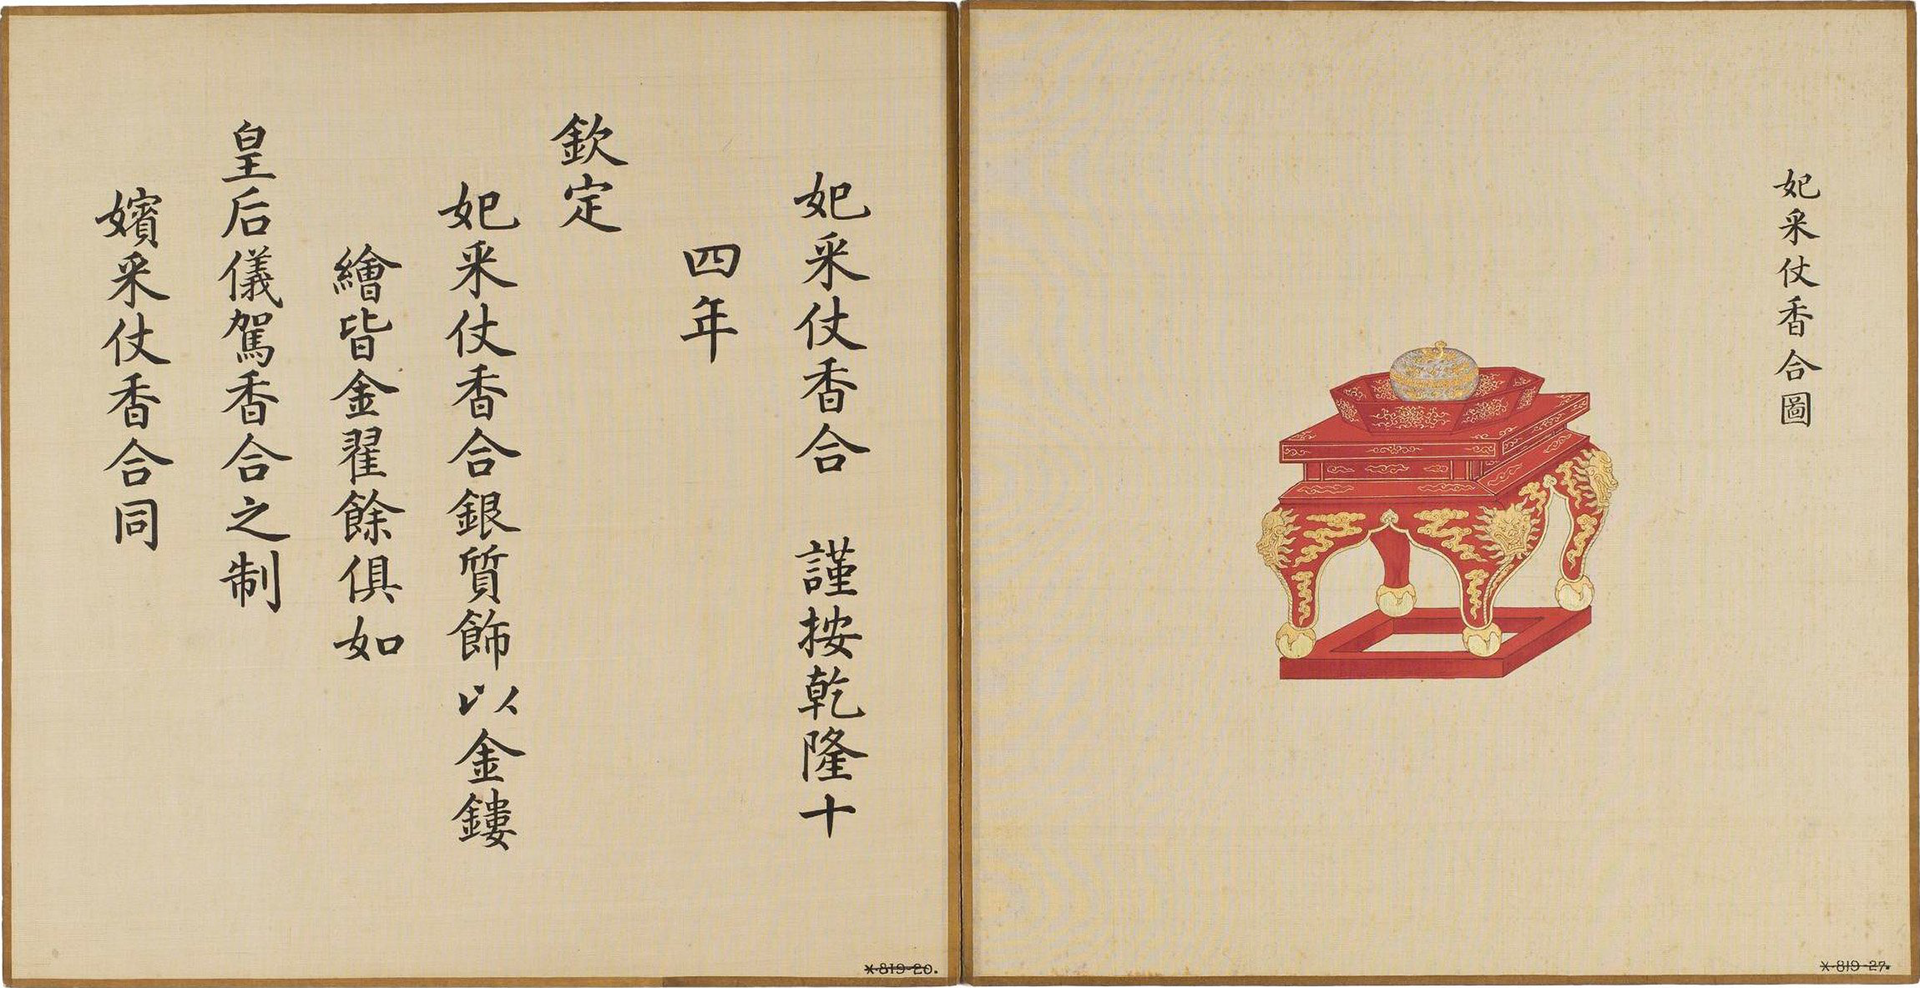 妃采仗香合圖
妃采仗香合　謹按乾隆十
四年
欽定
妃采仗香合銀質飾以金鏤
繪皆金翟餘俱如
皇后儀駕香合之制
嬪采仗香合同
X·819-20.
X·819-27.